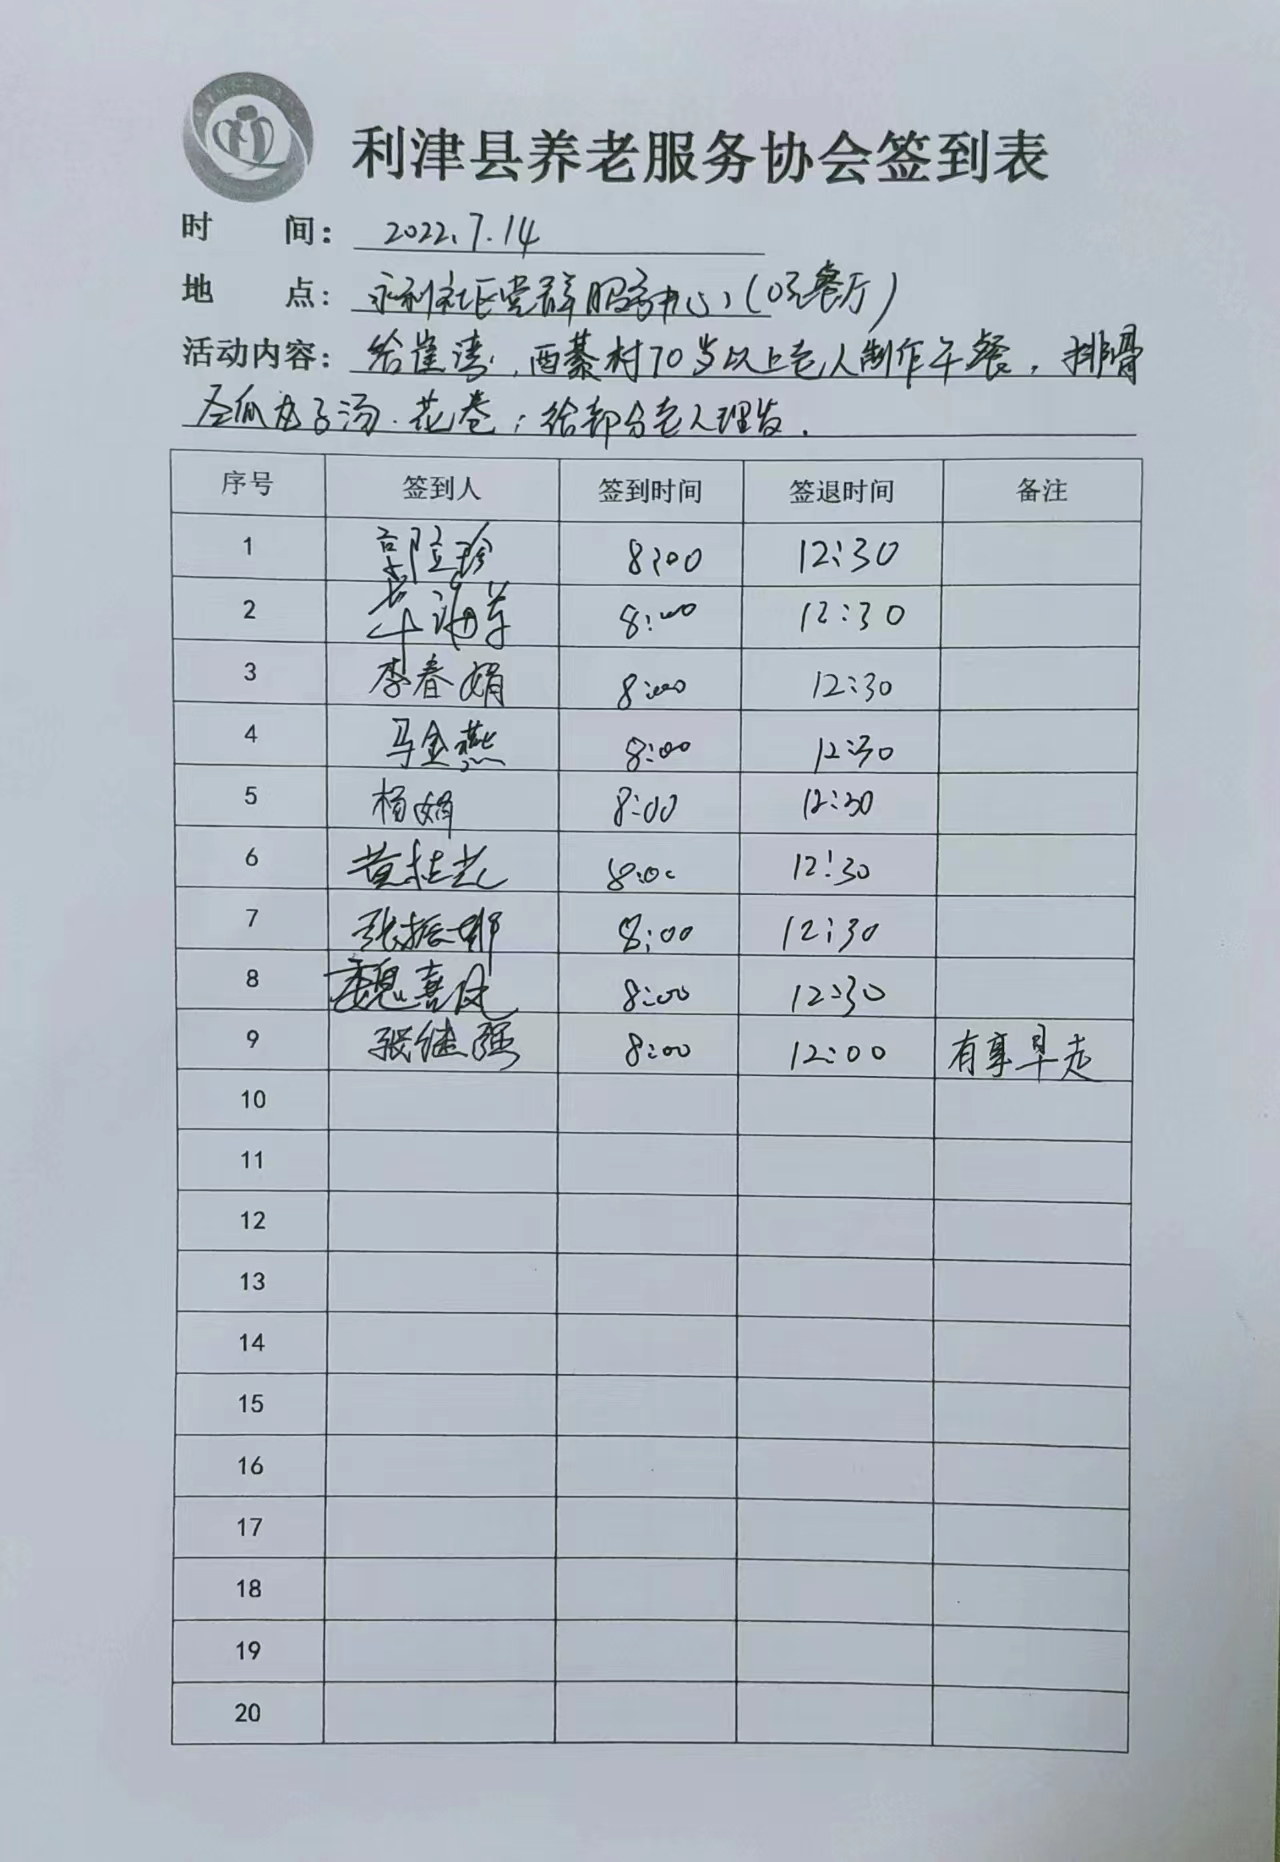 利津县养老服务协会签到表
时 间: 2022.7.14
地 点: 永利社区党群服务中心(0元餐厅)
活动内容: 给崔 西綦村70岁以上老人制作午餐. 排骨
冬瓜丸子汤. 花卷; 给部分老人理发.
序号 签到人 签到时间 签退时间 备注
1 郭立珍 8:00 12:30
2 8:00 12:30
3 李春娟 8:00 12:30
4 马金燕 8:00 12:30
5 杨娟 8:00 12:30
6 黄桂芝 8:00 12:30
7 张振 8:00 12:30
8 魏喜凤 8:00 12:30
9 张继强 8:00 12:00 有享早走
10
11
12
13
14
15
16
17
18
19
20